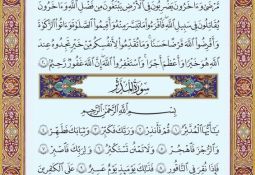 مَّرْضَىٰ وَءَاخَرُونَ يَضْرِبُونَ فِي ٱلْأَرْضِ يَبْتَغُونَ مِن فَضْلِ ٱللَّهِ وَءَاخَرُونَ
يُقَٰتِلُونَ فِي سَبِيلِ ٱللَّهِ فَٱقْرَءُوا۟ مَا تَيَسَّرَ مِنْهُ وَأَقِيمُوا۟ ٱلصَّلَوٰةَ وَءَاتُوا۟ ٱلزَّكَوٰةَ
وَأَقْرِضُوا۟ ٱللَّهَ قَرْضًا حَسَنًا وَمَا تُقَدِّمُوا۟ لِأَنفُسِكُم مِّنْ خَيْرٍ تَجِدُوهُ عِندَ
ٱللَّهِ هُوَ خَيْرًا وَأَعْظَمَ أَجْرًا وَٱسْتَغْفِرُوا۟ ٱللَّهَ إِنَّ ٱللَّهَ غَفُورٌ رَّحِيمٌۢ ۝٢٠
سُورَةُ ٱلْمُدَّثِّرِ
بِسْمِ ٱللَّهِ ٱلرَّحْمَٰنِ ٱلرَّحِيمِ
يَٰٓأَيُّهَا ٱلْمُدَّثِّرُ ۝١ قُمْ فَأَنذِرْ ۝٢ وَرَبَّكَ فَكَبِّرْ ۝٣ وَثِيَابَكَ فَطَهِّرْ ۝٤
وَٱلرُّجْزَ فَٱهْجُرْ ۝٥ وَلَا تَمْنُن تَسْتَكْثِرُ ۝٦ وَلِرَبِّكَ فَٱصْبِرْ ۝٧
فَإِذَا نُقِرَ فِي ٱلنَّاقُورِ ۝٨ فَذَٰلِكَ يَوْمَئِذٍ يَوْمٌ عَسِيرٌ ۝٩ عَلَى ٱلْكَٰفِرِينَ